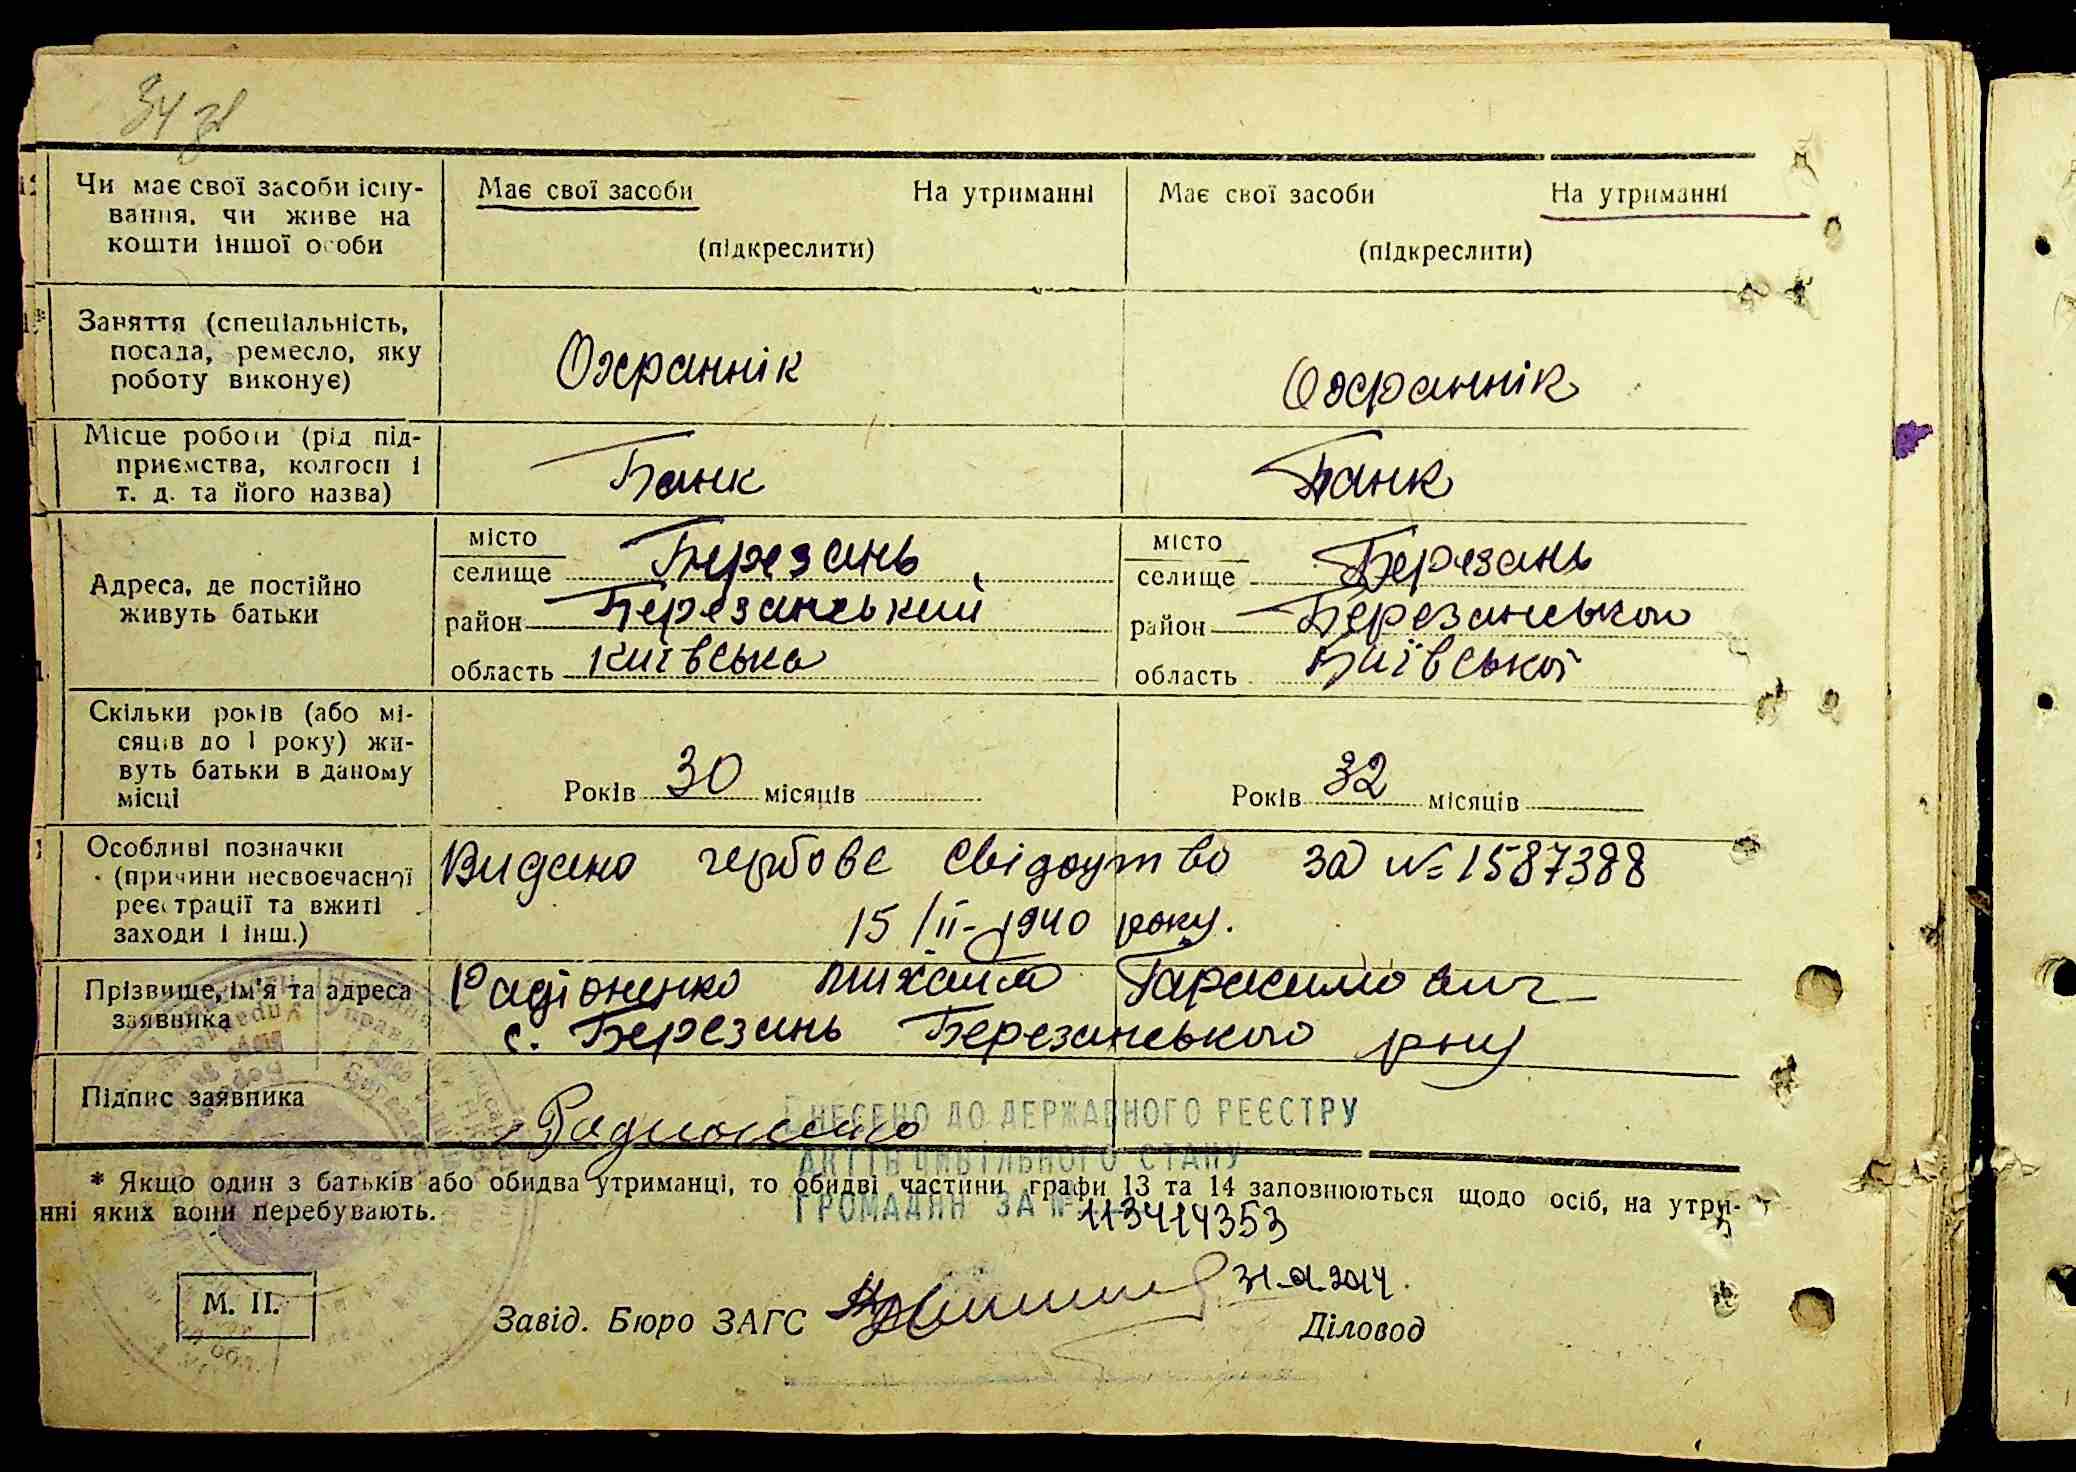 34 зв
Чи має свої засоби існу-
вання, чи живе на
кошти іншої особи
Має свої засоби На утриманні
(підкреслити)
Має свої засоби На утриманні
(підкреслити)
Заняття (спеціальність,
посада, ремесло, яку
роботу виконує)
Охраннік
Охраннік
Місце роботи (рід під-
приємства, колгосп і
т. д. та його назва)
Банк
Банк
Адреса, де постійно
живуть батьки
місто
селище Березань
район Березанський
область Київська
місто
селище Березань
район Березанського
область Київської
Скільки років (або мі-
сяців до 1 року) жи-
вуть батьки в даному
місці
Років 30 місяців
Років 32 місяців
Особливі позначки
(причини несвоєчасної
реєстрації та вжиті
заходи і інш.)
Видано гербове свідоцтво за № 1587388
15/II-1940 року.
Прізвище, ім'я та адреса
заявника
Радіоненко Михаил Гарасимович
с. Березань Березанського рну
Підпис заявника
Радионенко
ВНЕСЕНО ДО ДЕРЖАВНОГО РЕЄСТРУ
АКТІВ ЦИВІЛЬНОГО СТАНУ
ГРОМАДЯН ЗА № 113414353
* Якщо один з батьків або обидва утриманці, то обидві частини графи 13 та 14 заповнюються щодо осіб, на утри-
нні яких вони перебувають.
31.01.2014.
М. П.
Завід. Бюро ЗАГС
Діловод